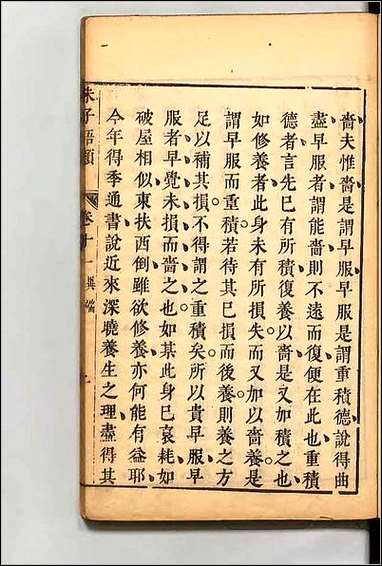 嗇夫惟嗇是謂早服早服是謂重積德說得曲
盡早服者謂能嗇則不遠而復便在此也重積
德者言先已有所積復養以嗇是又加積之也
如修養者此身未有所損失而又加以嗇養是
謂早服而重積若待其已損而後養則養之方
足以補其損不得謂之重積矣所以貴早服早
服者早覺未損而嗇之也如某此身已衰耗如
破屋相似東扶西倒雖欲修養亦何能有益耶
今年得季通書說近來深曉養生之理盡得其
朱子語類 卷十